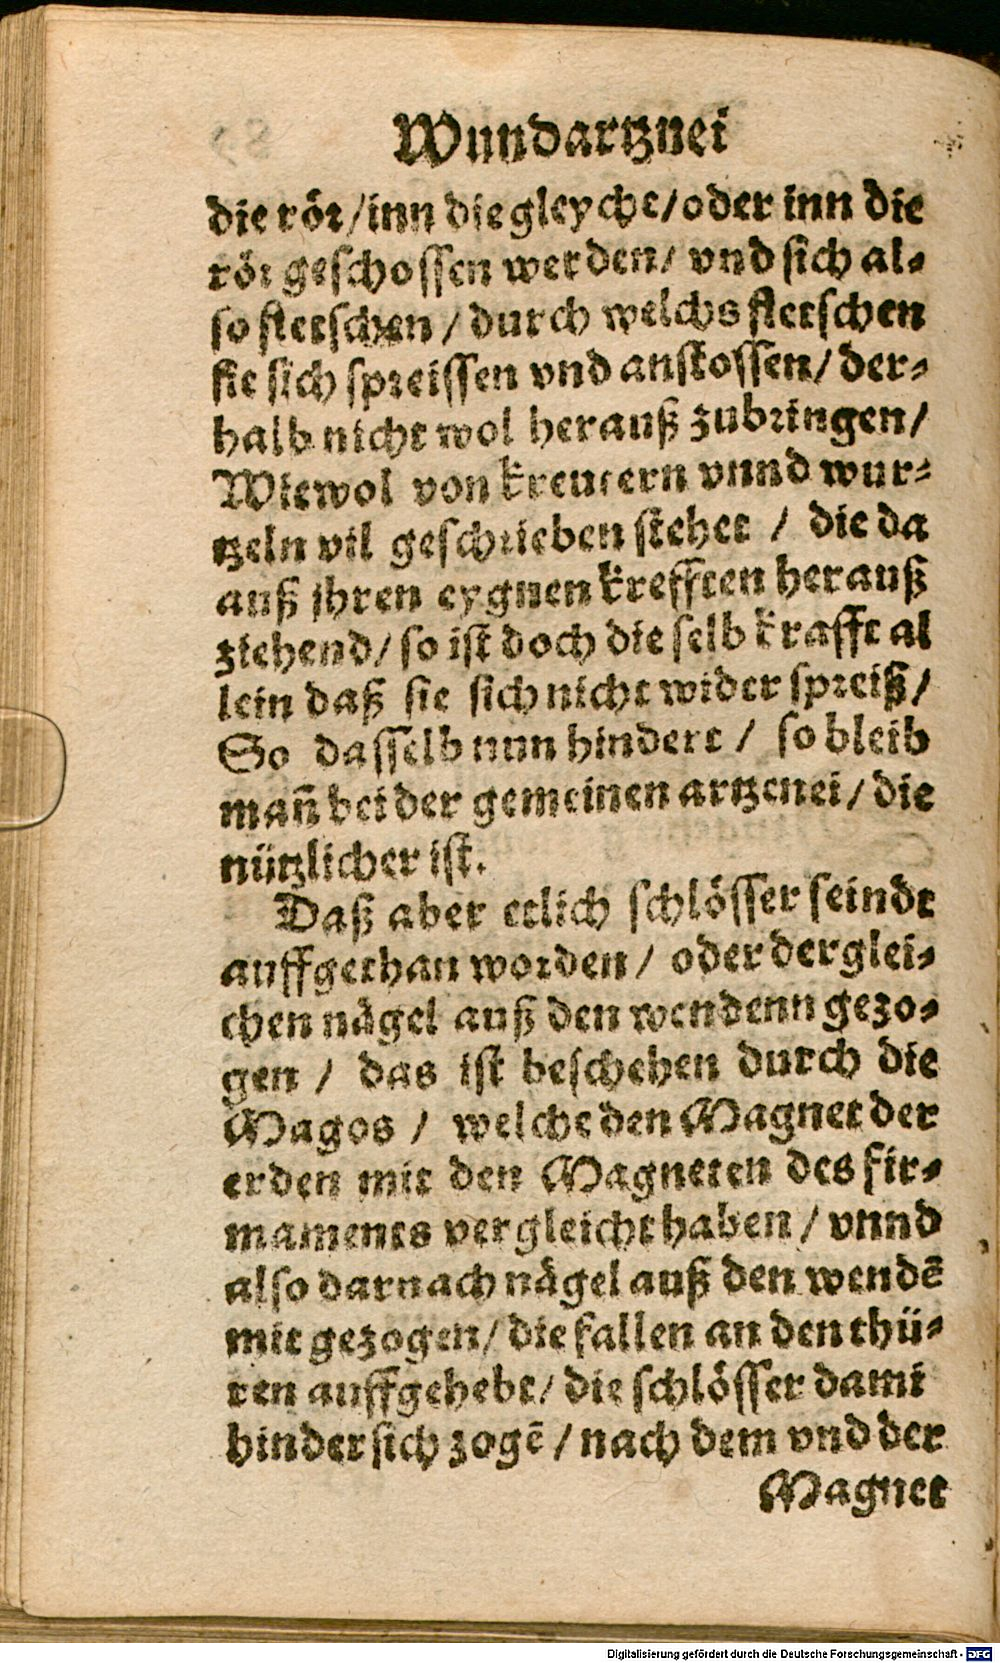 Wundartznei
die rör/inn die gleyche/oder inn die
rör geschossen werden/ vnd sich al-
so fletschen / durch welchs fletschen
sie sich spreissen vnd anstossen/ der-
halb nicht wol herauß zubringen/
Wiewol von kreutern vnnd wur-
tzeln vil geschrieben stehet / die da
auß jhren eygnen krefften herauß
ziehend/ so ist doch die selb krafft al
lein daß sie sich nicht wider spreiß/
So dasselb nun hindert / so bleib
mañ bei der gemeinen artzenei/ die
nützlicher ist.
Daß aber etlich schlösser seindt
auffgethan worden/ oder derglei-
chen nägel auß den wendenn gezo-
gen / das ist beschehen durch die
Magos / welche den Magnet der
erden mit den Magneten des fir-
maments vergleicht haben/ vnnd
also darnach nägel auß den wendē
mit gezogen/ die fallen an den thü-
ren auffgehebt/ die schlösser damt
hinder sich zogē / nach dem vnd der
Magnet
Digitalisierung gefördert durch die Deutsche Forschungsgemeinschaft - DFG